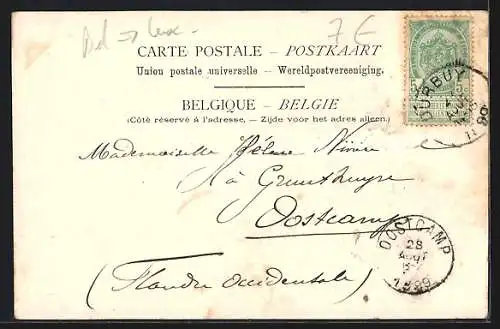 7 €
CARTE POSTALE – POSTKAART
Union postale universelle – Wereldpostvereeniging.
BELGIQUE – BELGIE
(Côté réservé à l'adresse. – Zijde voor het adres alleen.)
DURBUY
Mademoiselle Hélène
à Gruuthuyse
Oostcamp
OOSTCAMP
28
AOUT
1899
(Flandre Occidentale)